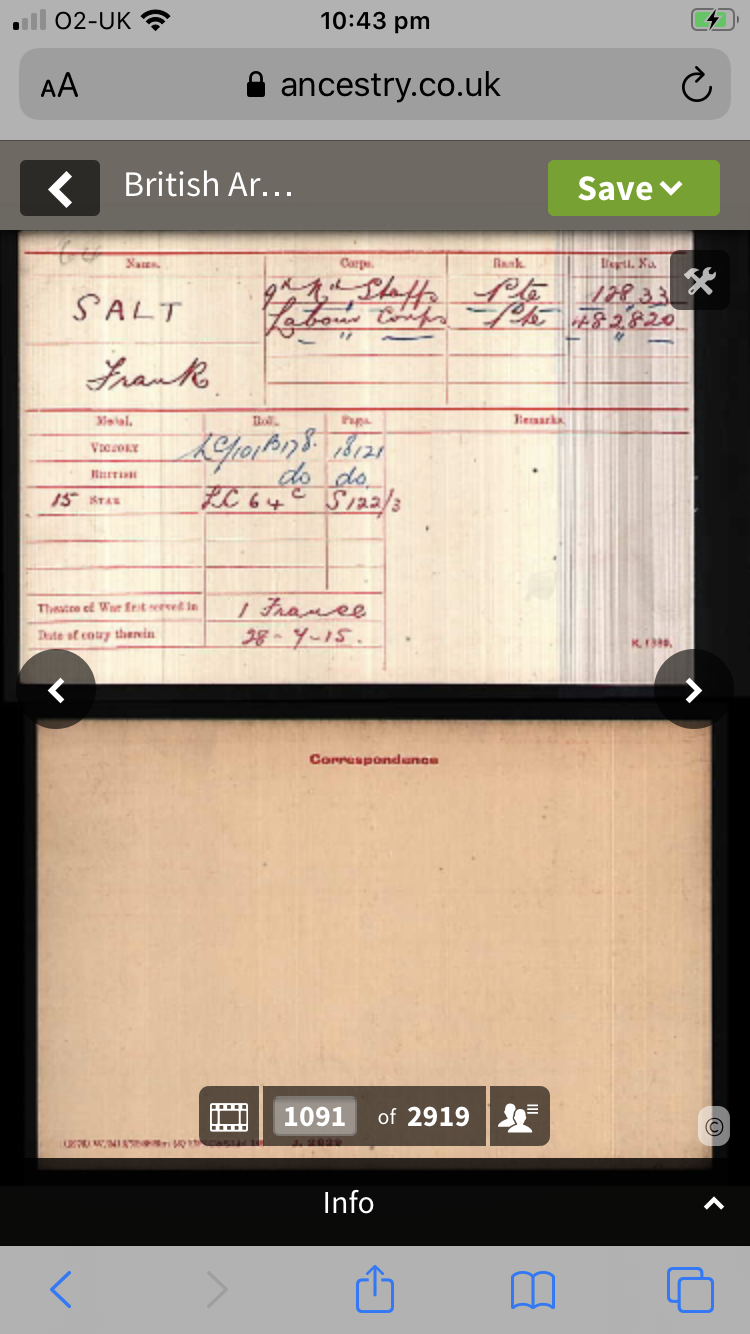 O2-UK 10:43 pm
AA ancestry.co.uk
British Ar... Save
Name. Corps. Rank. Regtl. No.
SALT 9th Nth Staffs Pte 12833
Labour Corps Pte 482820
" "
Frank
Medal. Roll. Page. Remarks.
VICTORY LC/101B178. 18121
BRITISH do do.
15 STAR LC 64C S122/3
Theatre of War first served in 1 France
Date of entry therein 28-7-15.
K. 1380.
Correspondence
1091 of 2919
©
Info